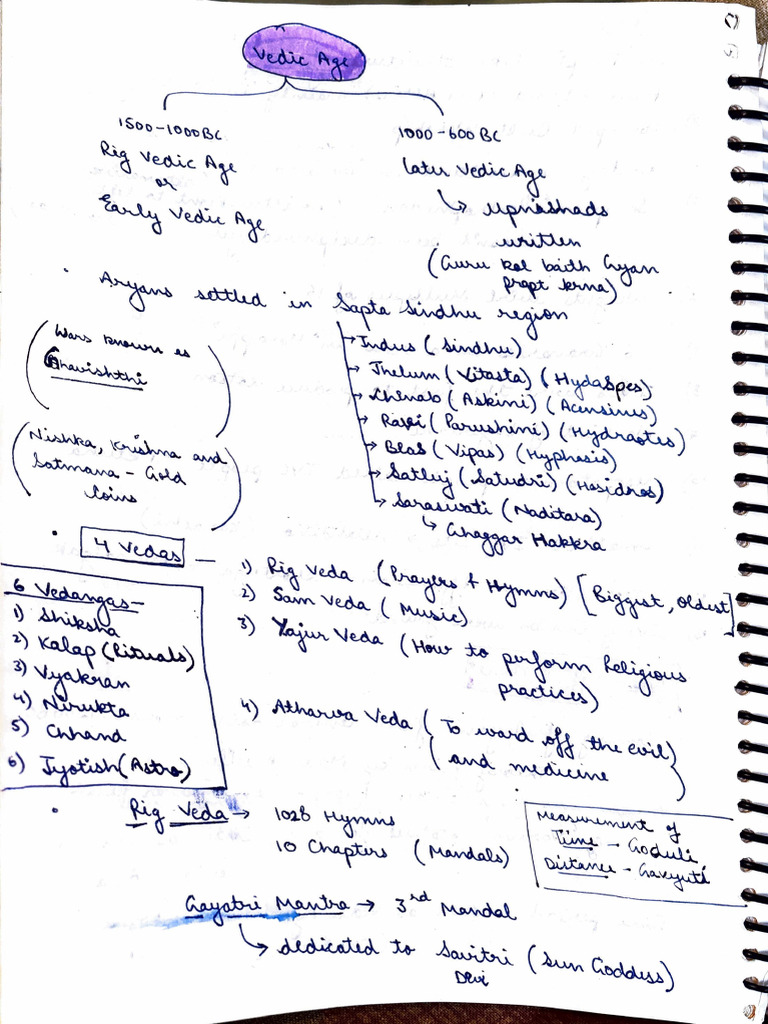 Vedic Age
1500-1000BC
Rig Vedic Age
or
Early Vedic Age
1000-600BC
later Vedic Age
↳ Upnishads
written
(Guru kol baith Gyan
prapt krna)
• Aryans settled in Sapta Sindhu region
(Wars known as
Ghavishthi)
(Nishka, Krishna and
Satmana - Gold
Coins)
→ Indus (Sindhu)
→ Jhelum (Vitasta) (Hydaspes)
→ Chenab (Askini) (Acensinus)
→ Ravi (Parushini) (Hydraotes)
→ Bias (Vipas) (Hyphasis)
→ Satluj (Satudri) (Hesidros)
→ Saraswati (Naditara)
↳ Ghaggar Hakkra
• 4 Vedas —
1) Rig Veda (Prayers + Hymns) [Biggest, Oldest]
2) Sam Veda (Music)
3) Yajur Veda (How to perform Religious
practices)
4) Atharva Veda (To ward off the evil)
(and medicine)
6 Vedangas-
1) Shiksha
2) Kalap (Rituals)
3) Vyakran
4) Nirukta
5) Chhand
6) Jyotish (Astro)
• Rig Veda → 1028 Hymns
10 Chapters (Mandals)
Measurement of
Time - Goduli,
Distance - Gavyuti
Gayatri Mantra → 3rd Mandal
↳ dedicated to Savitri (Sun Goddess)
Devi